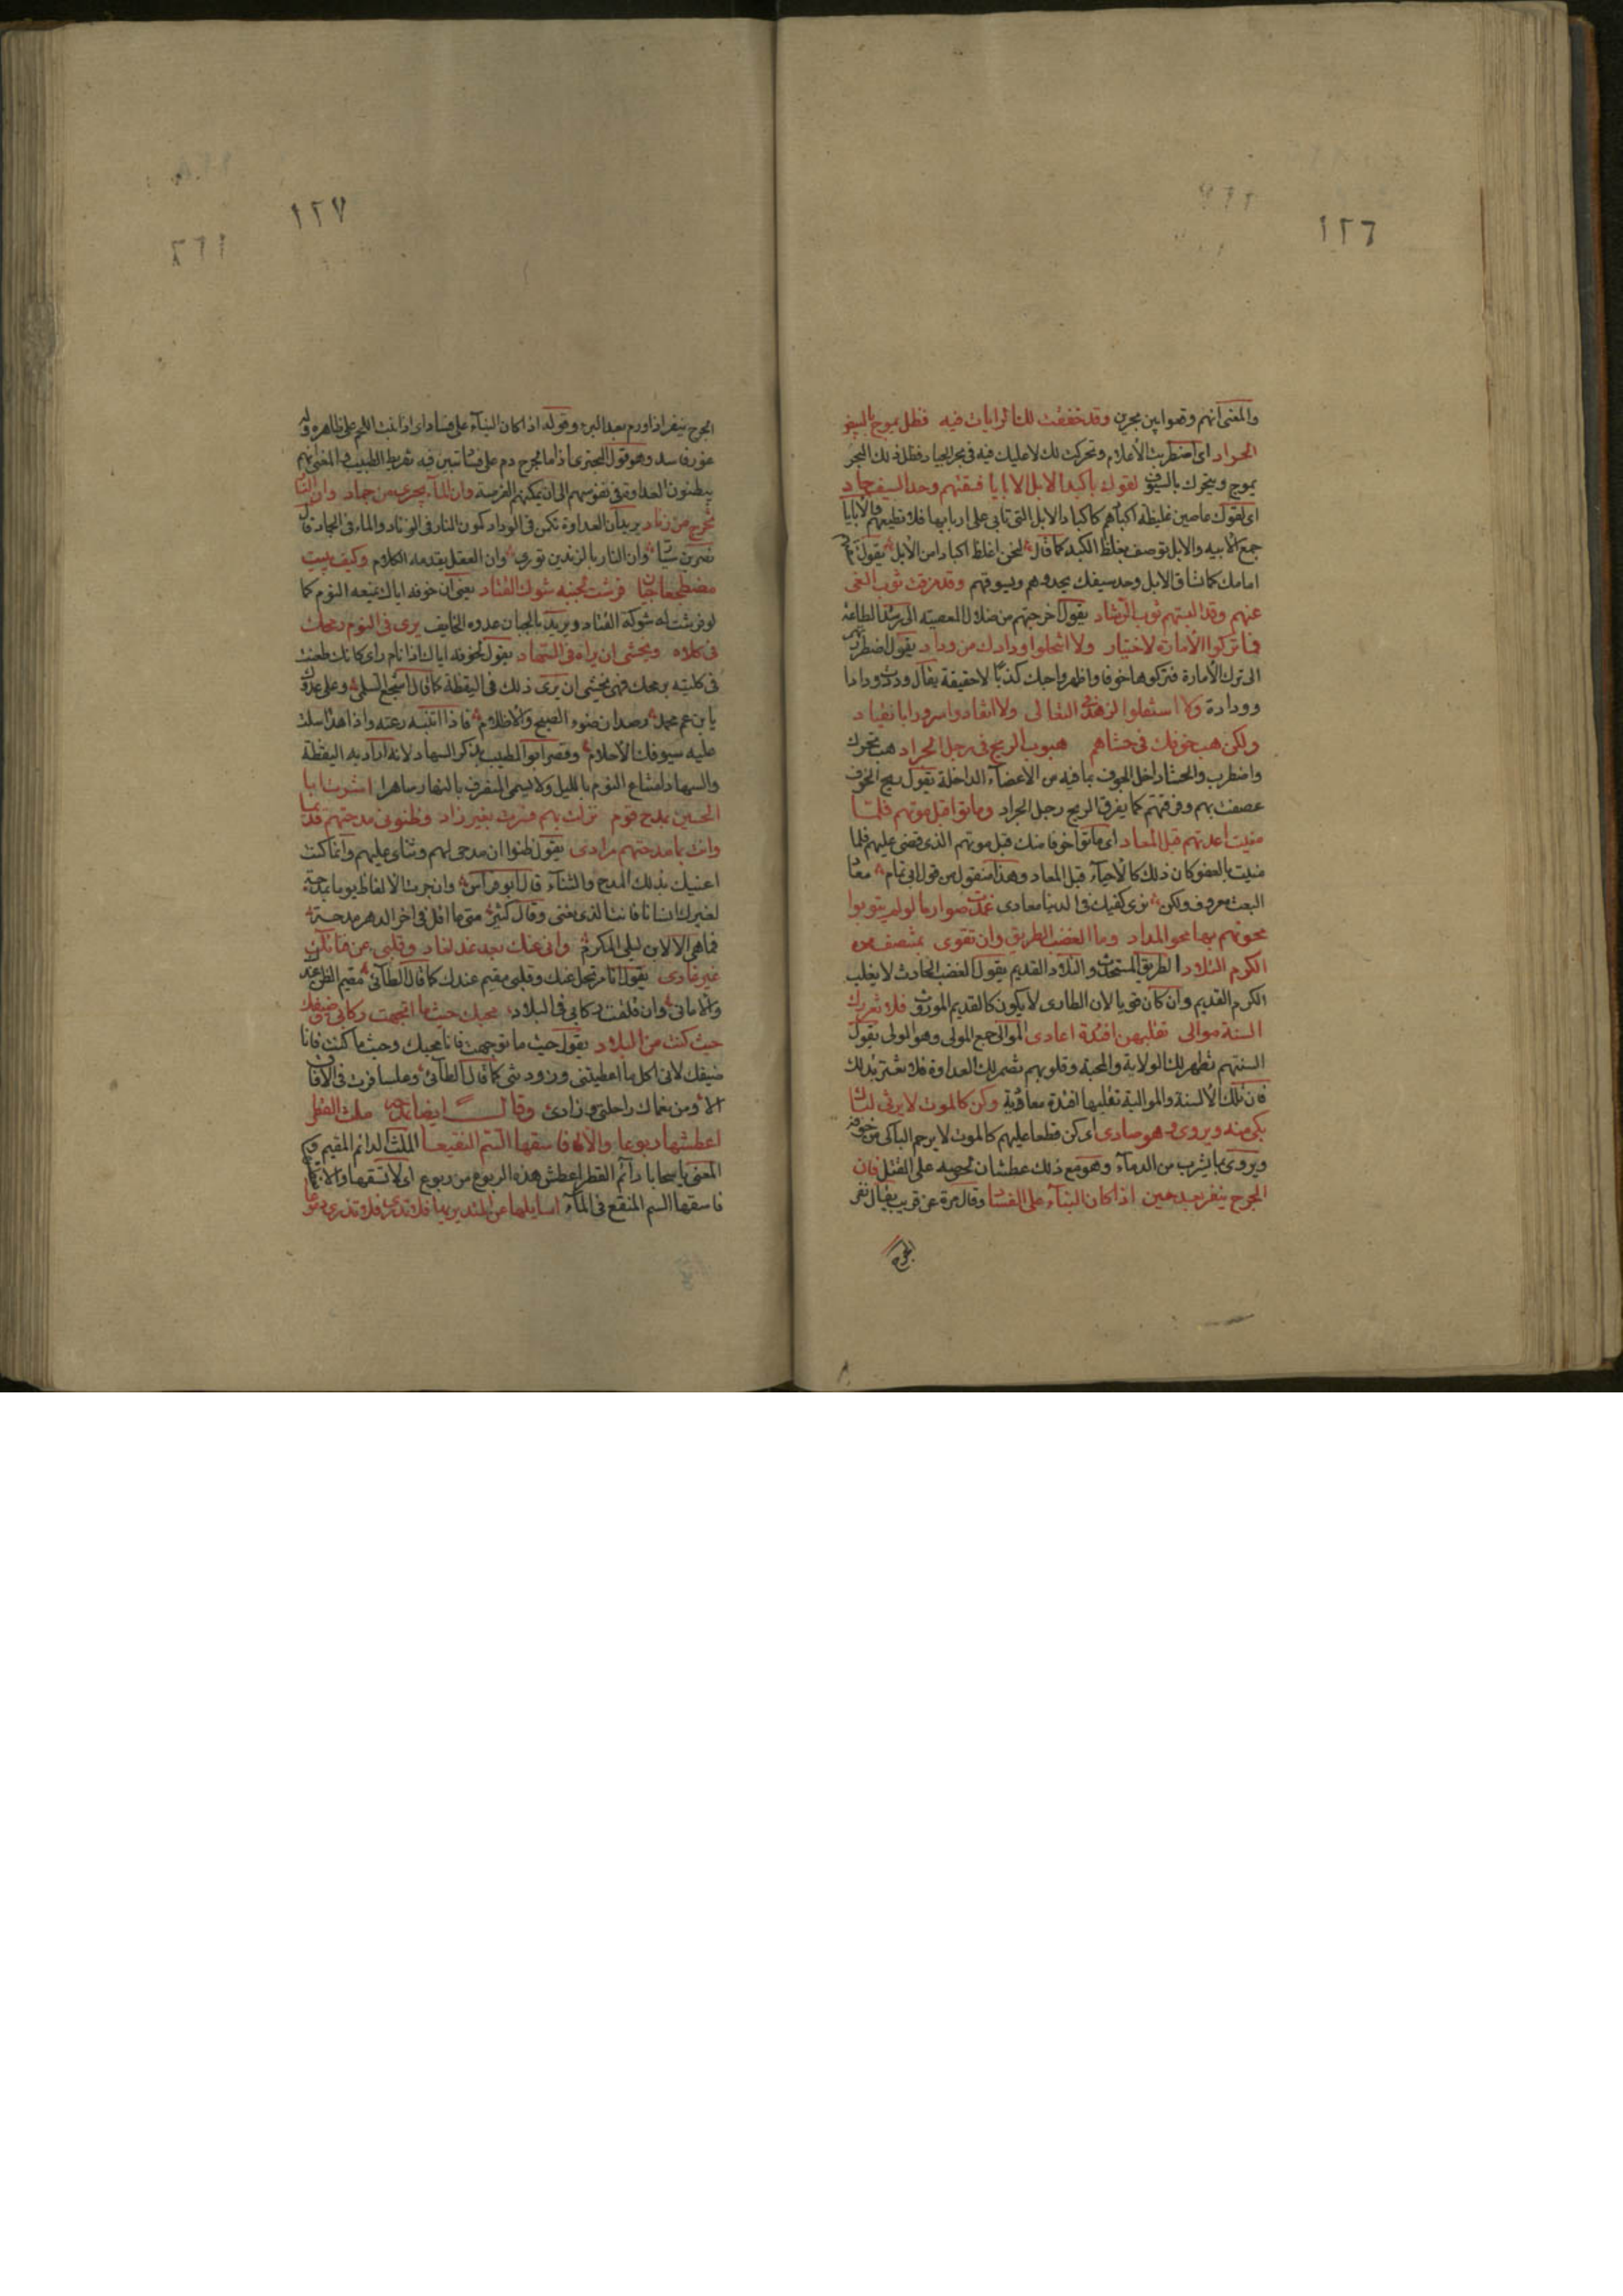 ١٢٦
والمعنى انهم وقعوا بين بحرين وقد خفقت لك الرايات فيه فظل يموج بالبيض
الحداد اى اضطربت الأعلام وتحركت لك لا عليك فيه فى بحر الجياد فظل ذلك البحر
يموج ويتحرك بالسيوف لقوك باكبد الابل الابايا فسقتهم وحد السيف حاد
اى لقوك عاصين غليظة اكبادهم كاكباد الابل التى تابى على اربابها فلا تطيعهم والابايا
جمع الابيه والابل توصف بغلظ الكبد كما قال لنحن اغلظ اكبادا من الابل يقول
امامك كما تساق الابل وحد سيفك يحدوهم ويسوقهم وقد مزقت ثوب الغى
عنهم وقد البستهم ثوب الرشاد يقول اخرجتهم من ضلال المعصية الى رشد الطاعة
فما تركوا الامارة لاختيار ولا انتحلوا ودادك من وداد يقول اضطررتهم
الى ترك الامارة فتركوها خوفا واظهروا حبك كذبا لا حقيقة يقال وددت ودادا
وودادة ولا استفلوا لزهد فى التعالى ولا انقادوا سرورا بانقياد
ولكن هب خوفك فى حشاهم هبوب الريح فى رجل الجراد هب تحرك
واضطرب والحشا داخل الجوف بما فيه من الاعضاء الداخلة يقول ريح الخوف
عصفت بهم وفرقتهم كما يفرق الريح رجل الجراد وماتوا قبل موتهم فلما
مننت اعدتهم قبل المعاد اى ماتوا خوفا منك قبل موتهم الذى قضى عليهم فلما
مننت بالعفو كان ذلك كالاحياء قبل المعاد وهذا منقول من قول ابى تمام معاد
البعث معروف ولكن ندى كفيك فى الدنيا معادى غمدت صوارما لو لم يتوبوا
محوتهم بها محو المداد وما الغضب الطريق وان تقوى بمنتصف من
الكرم التلاد الطريق المستحدث والتلاد القديم يقول الغضب الحادث لا يغلب
الكرم القديم وان كان قويا لان الطارى لا يكون كالقديم الموروث فلا تغررك
السنة موالى تقلبهن افئدة اعادى الموالى جمع المولى وهو الولى يقول
السنتهم تظهر لك الولاية والمحبة وقلوبهم تضمر لك العداوة فلا تغتر بذلك
فان تلك الألسنة والموالية تقلبها افئدة معادية وكن كالموت لا يرثى لباك
بكى منه ويروى وهو صادى اى كن قطعا عليهم كالموت لا يرحم الباكى من خوفه
ويروى بما يشرب من الدماء وهو مع ذلك عطشان لحرصه على القتل فان
الجرح ينفر بعد حين اذا كان البناء على الفساد وقال مرة عن قريب يقال نفر
الجرح
١٢٧
الجرح ينفر اذا ورم بعد البرء وقوله اذا كان البناء على فساد اى اذا نبت اللحم على ظاهره وله
غور فاسد وهو قول البحترى اذا ما الجرح رم على فساد تبين فيه تفريط الطبيب والمعنى انهم
يبطنون العداوة فى نفوسهم الى ان يمكنهم الفرصة وان الماء يجرى من جماد وان النار
تخرج من زناد يريد ان العداوة تكمن فى الوداد كمون النار فى الزناد والماء فى الجماد قال
نصر بن سيار وان النار بالزندين تورى وان الفعل يقدمه الكلام وكيف يبيت
مضطجعا جبان فرشت لجنبه شوك القتاد يعنى ان خوفه اياك يمنعه النوم كما
لو فرشت له شوكة القتاد ويريد بالجبان عدوه الخايف يرى فى النوم رمحك
فى كلاه ويخشى ان يراه فى السهاد يقول لخوفه اياك اذا نام راى كانك طعنت
فى كليته برمحك فهو يخشى ان يرى ذلك فى اليقظة كما قال اشجع السلمى وعلى عدوك
يا بن عم محمد رصدان ضوء الصبح والاظلام فاذا انتبه رعته واذا هدا سلت
عليه سيوفك الأحلام وقصر ابو الطيب بذكر السهاد لانه اراد به اليقظة
والسهاد امتناع النوم بالليل ولا يسمى المتصرف بالنهار ساهرا اشرت ابا
الحسين بمدح قوم نزلت بهم فسرت بغير زاد وظنونى مدحتهم قديما
وانت بما مدحتهم مرادى يقول ظنوا ان مدحى لهم وثناى عليهم وانما كنت
اعنيك بذلك المدح والثناء قال ابو نواس وان جرت الالفاظ يوما بمدحة
لغيرك انسانا فانت الذى نعنى وقال كثير متى ما اقل فى اخر الدهر مدحة
فما هى الا لابن ليلى المكرم وانى عنك بعد غد لغاد وقلبى عن فنائك
غير غادى يقول انا مرتحل عنك وقلبى مقيم عندك كما قال الطائى مقيم الظن عندك
والامانى وان قلقت ركابى فى البلاد محبك حيثما اتجهت ركابى وضيفك
حيث كنت من البلاد يقول حيث ما توجهت فانا محبك وحيث ما كنت فانا
ضيفك لانى اكل ما اعطيتنى وزودتنى كما قال الطائى وما سافرت فى الافاق
الا ومن نعماك راحلتى وزادى وقال ايضا يمدحه ملث القطر
اعطشها ربوعا والا فاسقها السم النقيعا الملث الدائم المقيم
المعنى يا سحابا دائم القطر اعطش هذه الربوع من ربوع اى لا تسقها والا
فاسقها السم المنقع فى الماء اسايلها عن المتديريها فلا تدرى ولا تذرى دموعا